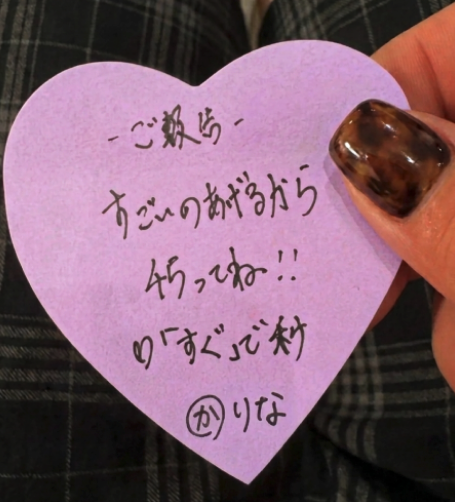 -ご報告-
すごいのあげるから
待ってね!!
「すぐ」で
㋕りな